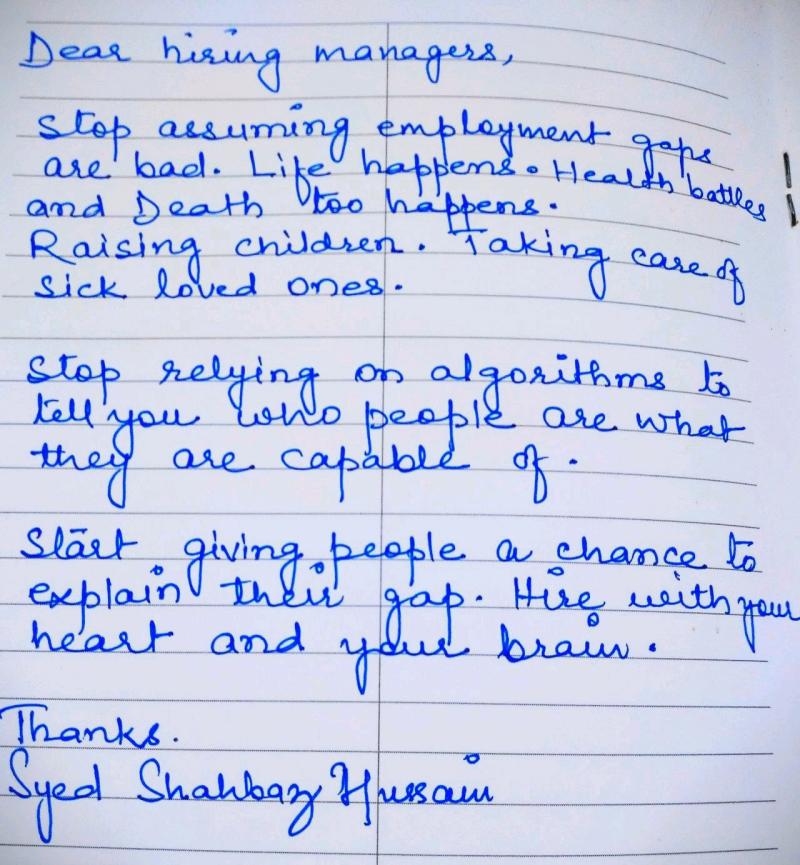 Dear hiring managers,
Stop assuming employment gaps
are bad. Life happens. Health battles
and Death too happens.
Raising children. Taking care of
sick loved ones.
Stop relying on algorithms to
tell you who people are what
they are capable of.
Start giving people a chance to
explain their gap. Hire with your
heart and your brain.
Thanks.
Syed Shahbaz Hussain